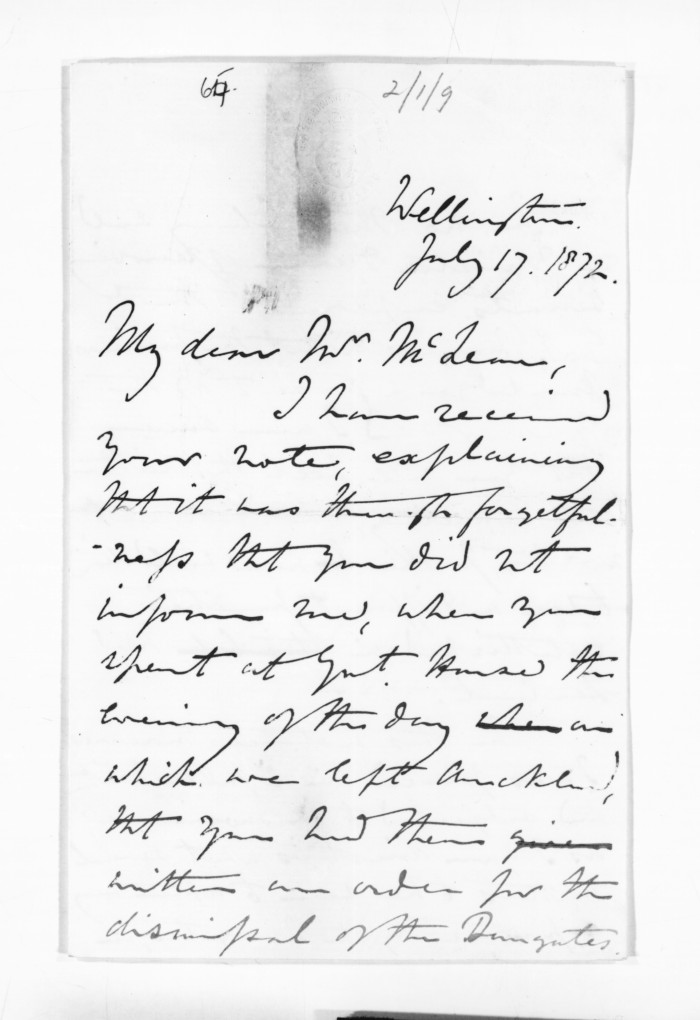 2/1/9
Wellington.
July 17. 1872.
My dear Mr. McLean,
I have received
your note, explaining
that it was through forgetful-
-ness that you did not
inform me, when you
spent at Govt. House the
evening of the day when on
which we left Auckland,
that you had then given
written an order for the
dismissal of the Bungates.